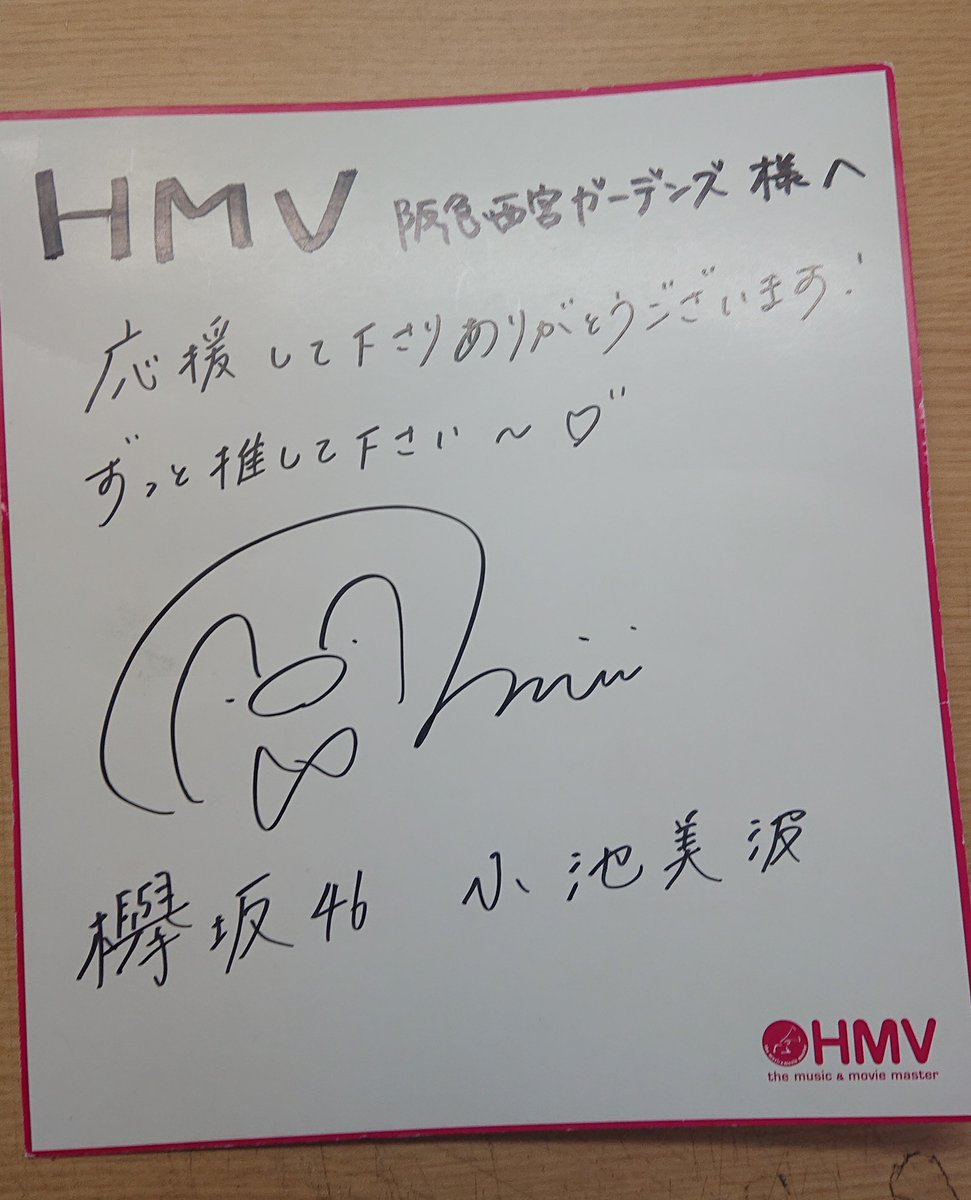 HMV 阪急西宮ガーデンズ 様へ
応援して下さりありがとうございます!
ずっと推して下さい〜♡
欅坂46 小池美波
HMV
the music & movie master